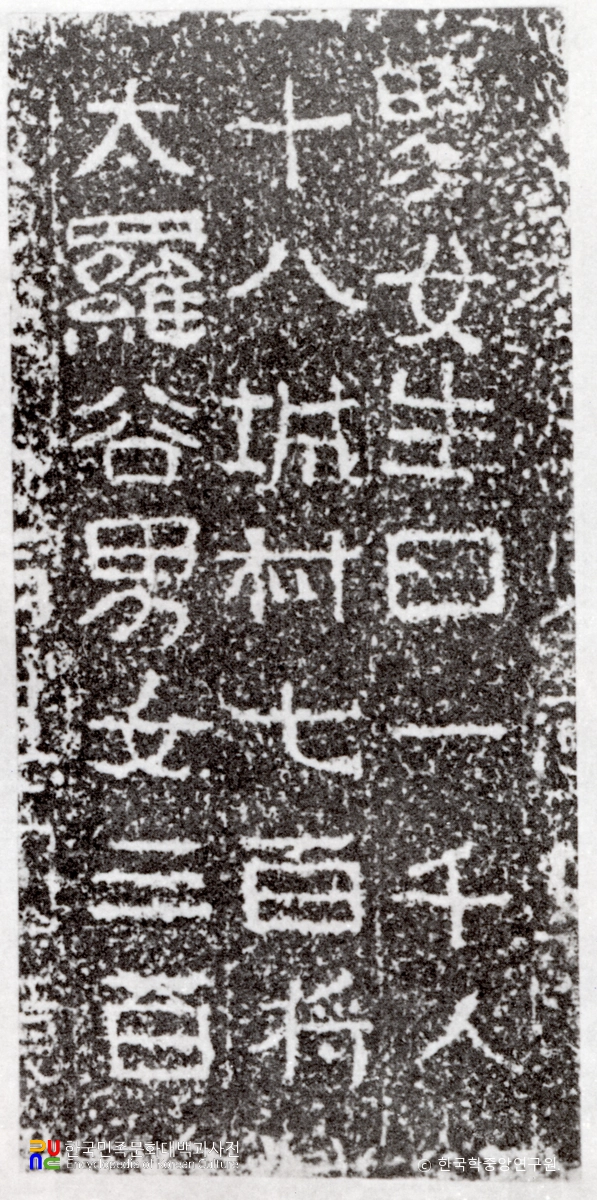 男女生口一千人
十八城村七百將
大羅谷男女三百
한국민족문화대백과사전
Encyclopedia of Korean Culture
ⓒ 한국학중앙연구원